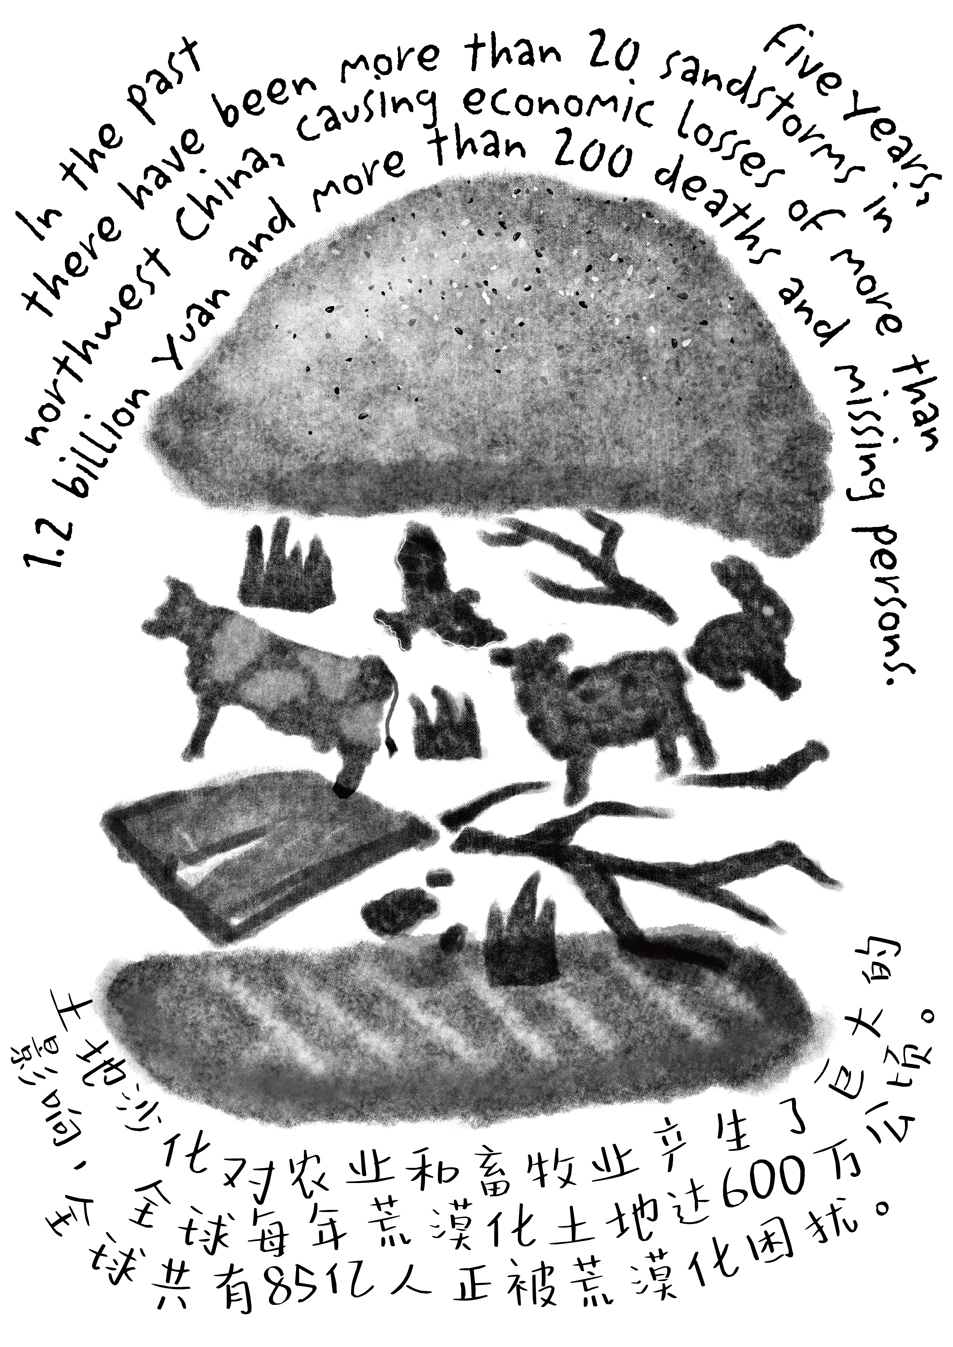 In the past five years,
there have been more than 20 sandstorms in
northwest China, causing economic losses of more than
1.2 billion yuan and more than 200 deaths and missing persons.
土地沙化对农业和畜牧业产生了巨大的
影响，全球每年荒漠化土地达600万公顷。
全球共有85亿人正被荒漠化困扰。